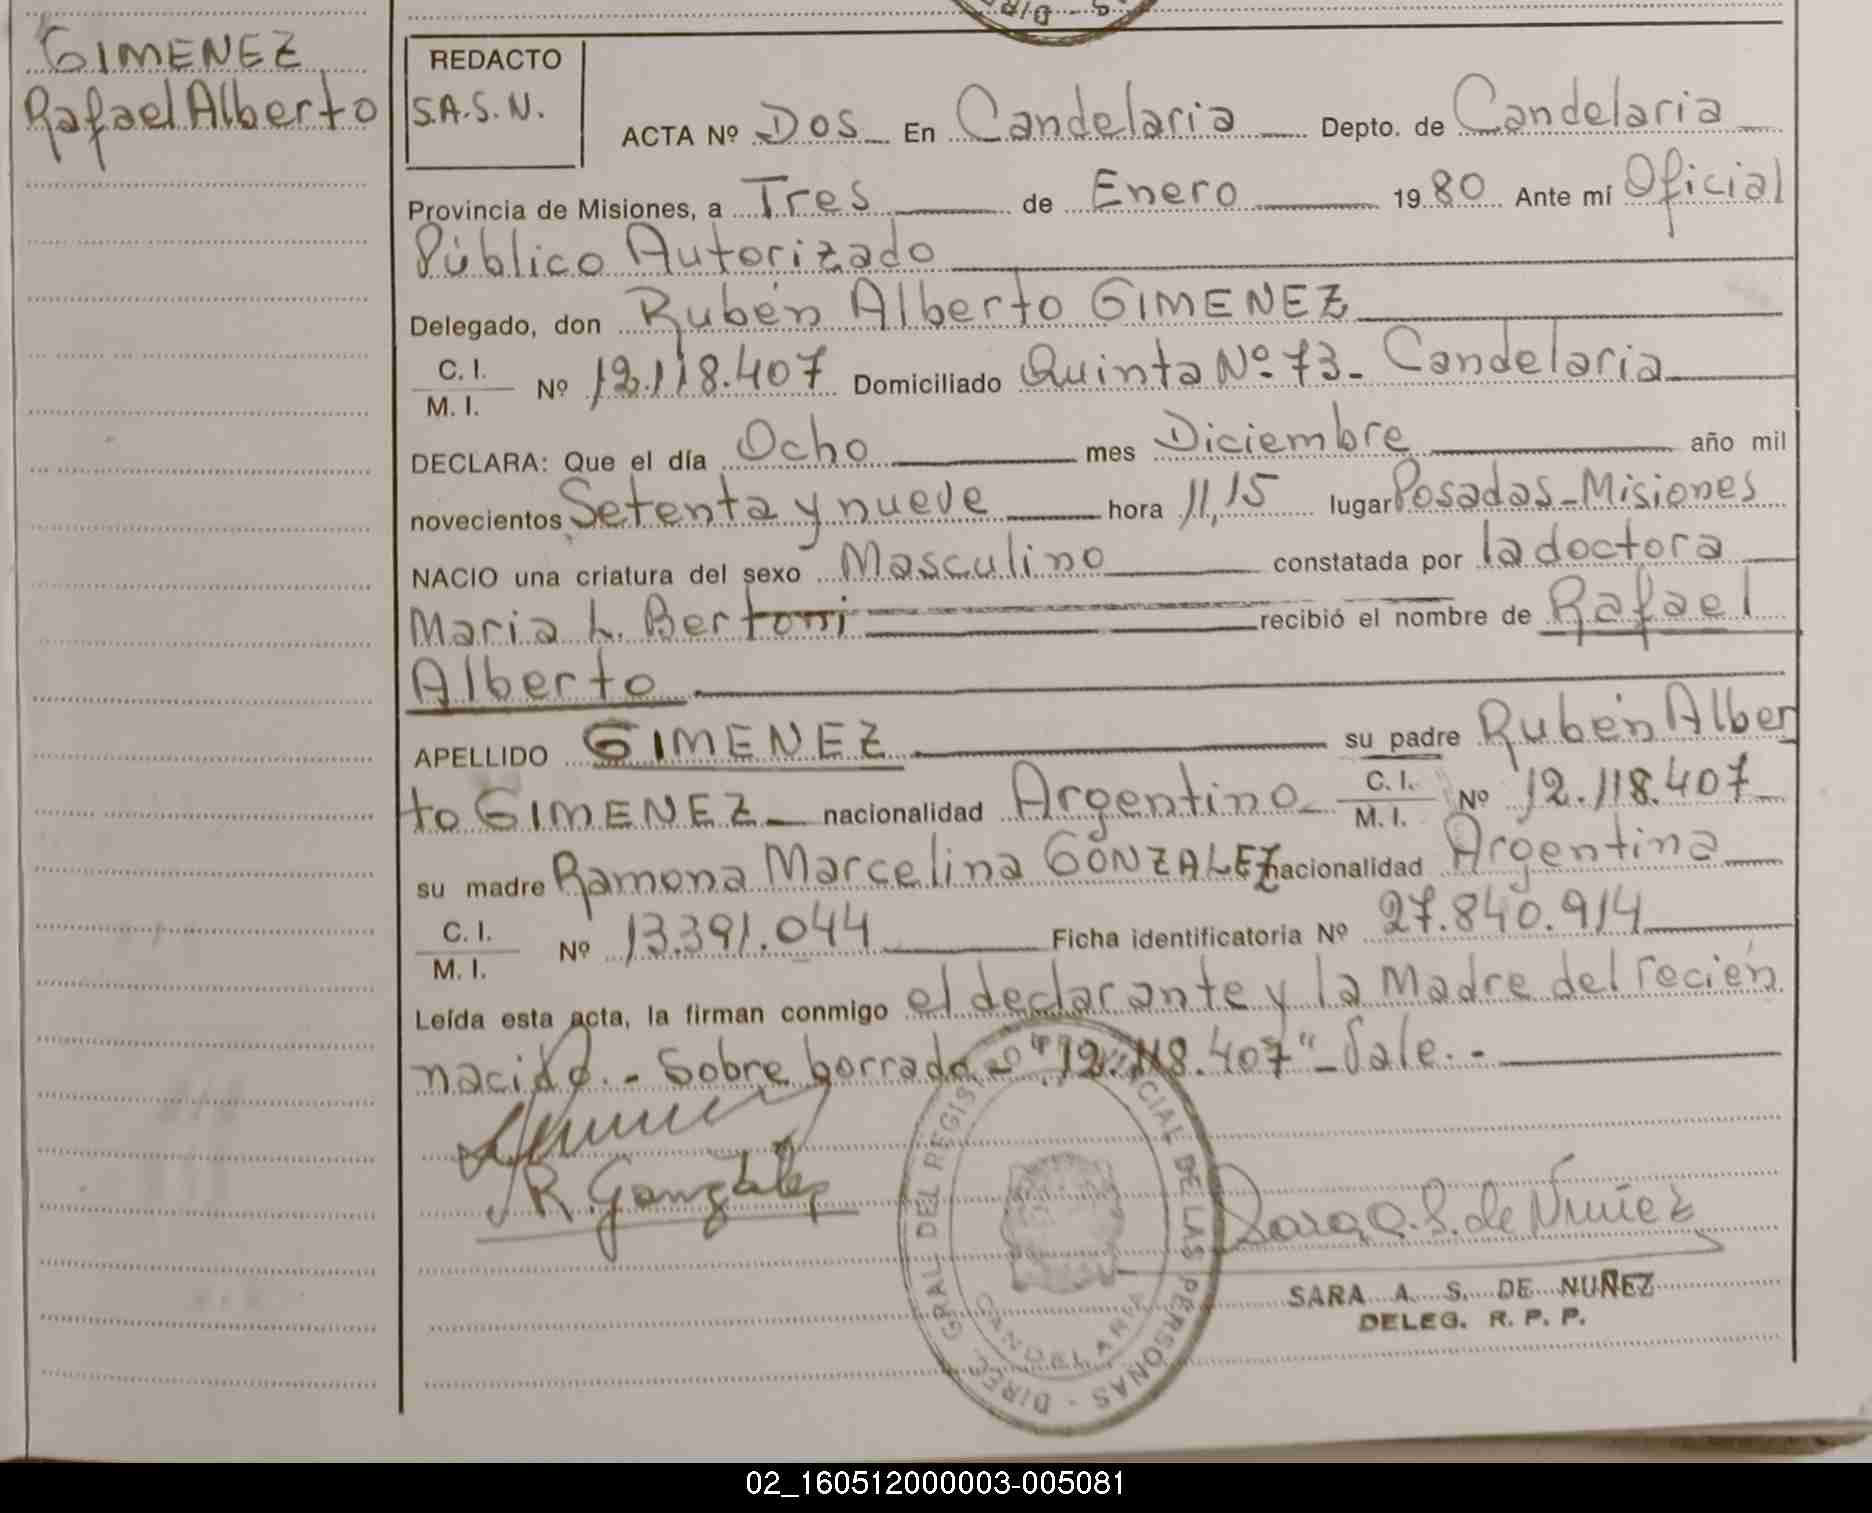 GIMENEZ
Rafael Alberto
REDACTO
S.A.S.N.
ACTA Nº Dos En Candelaria Depto. de Candelaria
Provincia de Misiones, a Tres de Enero 1980 Ante mí Oficial
Público Autorizado
Delegado, don Rubén Alberto GIMENEZ
C. I.
M. I. Nº 12.118.407 Domiciliado Quinta Nº 73- Candelaria
DECLARA: Que el día Ocho mes Diciembre año mil
novecientos Setenta y nueve hora 11,15 lugar Posadas-Misiones
NACIO una criatura del sexo Masculino constatada por la doctora
Maria L. Bertoni recibió el nombre de Rafael
Alberto
APELLIDO GIMENEZ su padre Rubén Alber
to GIMENEZ nacionalidad Argentino C. I. M. I. Nº 12.118.407
su madre Ramona Marcelina GONZALEZ nacionalidad Argentina
C. I.
M. I. Nº 13.391.044 Ficha identificatoria Nº 27.840.914
Leída esta acta, la firman conmigo el declarante y la Madre del recién
nacido.- Sobre borrado "12.118.407" - Vale.-
R. Gonzalez
Sara A. S. de Nuñez
SARA A. S. DE NUÑEZ
DELEG. R. P. P.
DIREC. GRAL. DEL REGIST PROVINCIAL DE LAS PERSONAS
CANDELARIA
02_160512000003-005081